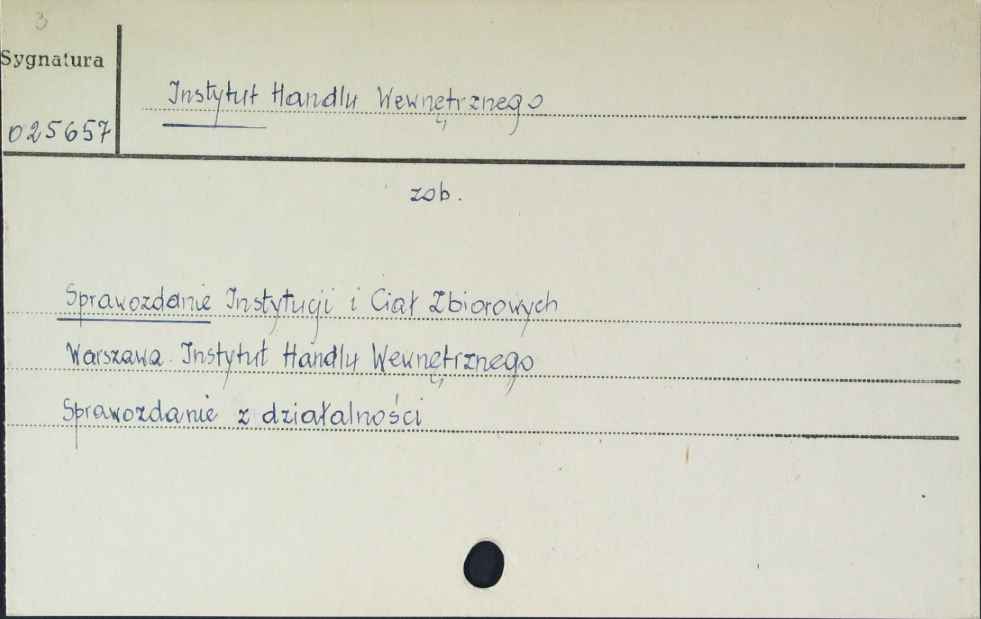 3
Sygnatura
Instytut Handlu Wewnętrznego
025657
zob.
Sprawozdanie Instytucji i Ciał Zbiorowych
Warszawa. Instytut Handlu Wewnętrznego
Sprawozdanie z działalności